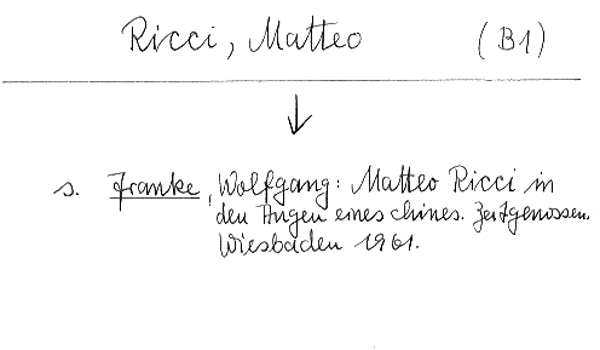 Ricci, Matteo (B1)
↓
s. Franke, Wolfgang: Matteo Ricci in
den Augen eines chines. Zeitgenossen.
Wiesbaden 1961.